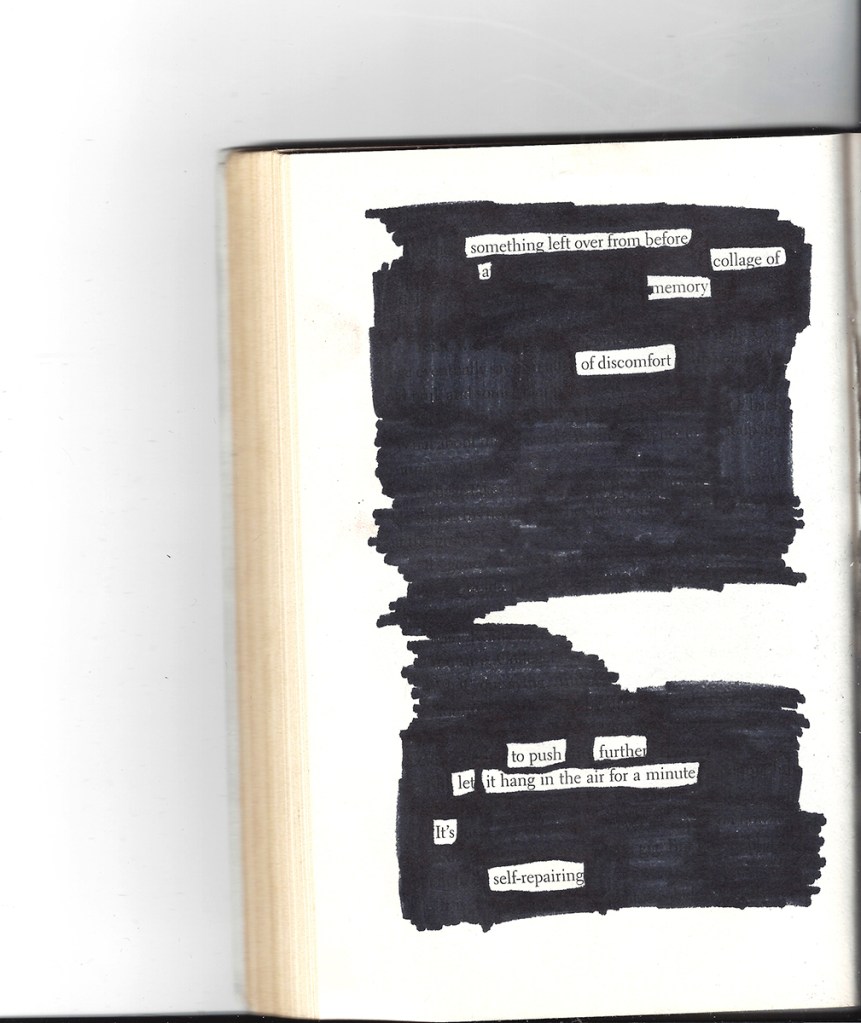 something left over from before
a collage of
memory
of discomfort
to push further
let it hang in the air for a minute
It's
self-repairing